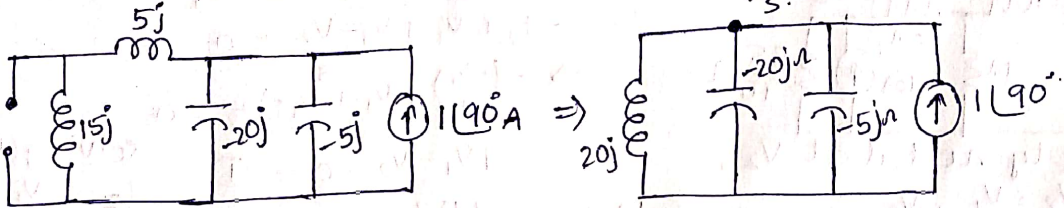 5j
15j
-20j
-5j
1∠90° A
⇒
20j
-20jΩ
-5jΩ
1∠90°